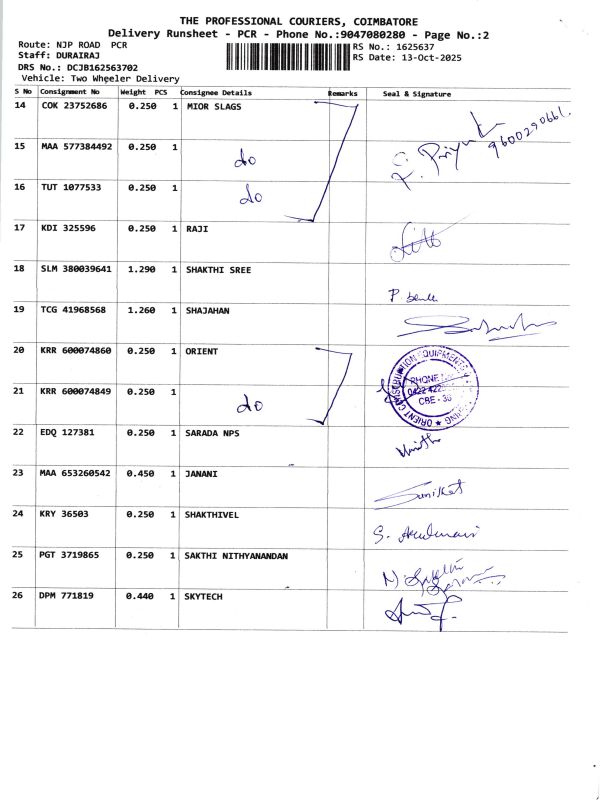 THE PROFESSIONAL COURIERS, COIMBATORE
Delivery Runsheet - PCR - Phone No.:9047080280 - Page No.:2
Route: NJP ROAD PCR
RS No.: 1625637
Staff: DURAIRAJ
RS Date: 13-Oct-2025
DRS No.: DCJB162563702
Vehicle: Two Wheeler Delivery
S No Consignment No Weight PCS Consignee Details Remarks Seal & Signature
14 COK 23752686 0.250 1 MIOR SLAGS
9600290661.
15 MAA 577384492 0.250 1 do
16 TUT 1077533 0.250 1 do
17 KDI 325596 0.250 1 RAJI
18 SLM 380039641 1.290 1 SHAKTHI SREE
19 TCG 41968568 1.260 1 SHAJAHAN
20 KRR 600074860 0.250 1 ORIENT
21 KRR 600074849 0.250 1 do
ORIENT CONSTRUCTION EQUIPMENTS
PHONE
CBE - 36
22 EDQ 127381 0.250 1 SARADA NPS
23 MAA 653260542 0.450 1 JANANI
24 KRY 36503 0.250 1 SHAKTHIVEL
25 PGT 3719865 0.250 1 SAKTHI NITHYANANDAN
26 DPM 771819 0.440 1 SKYTECH